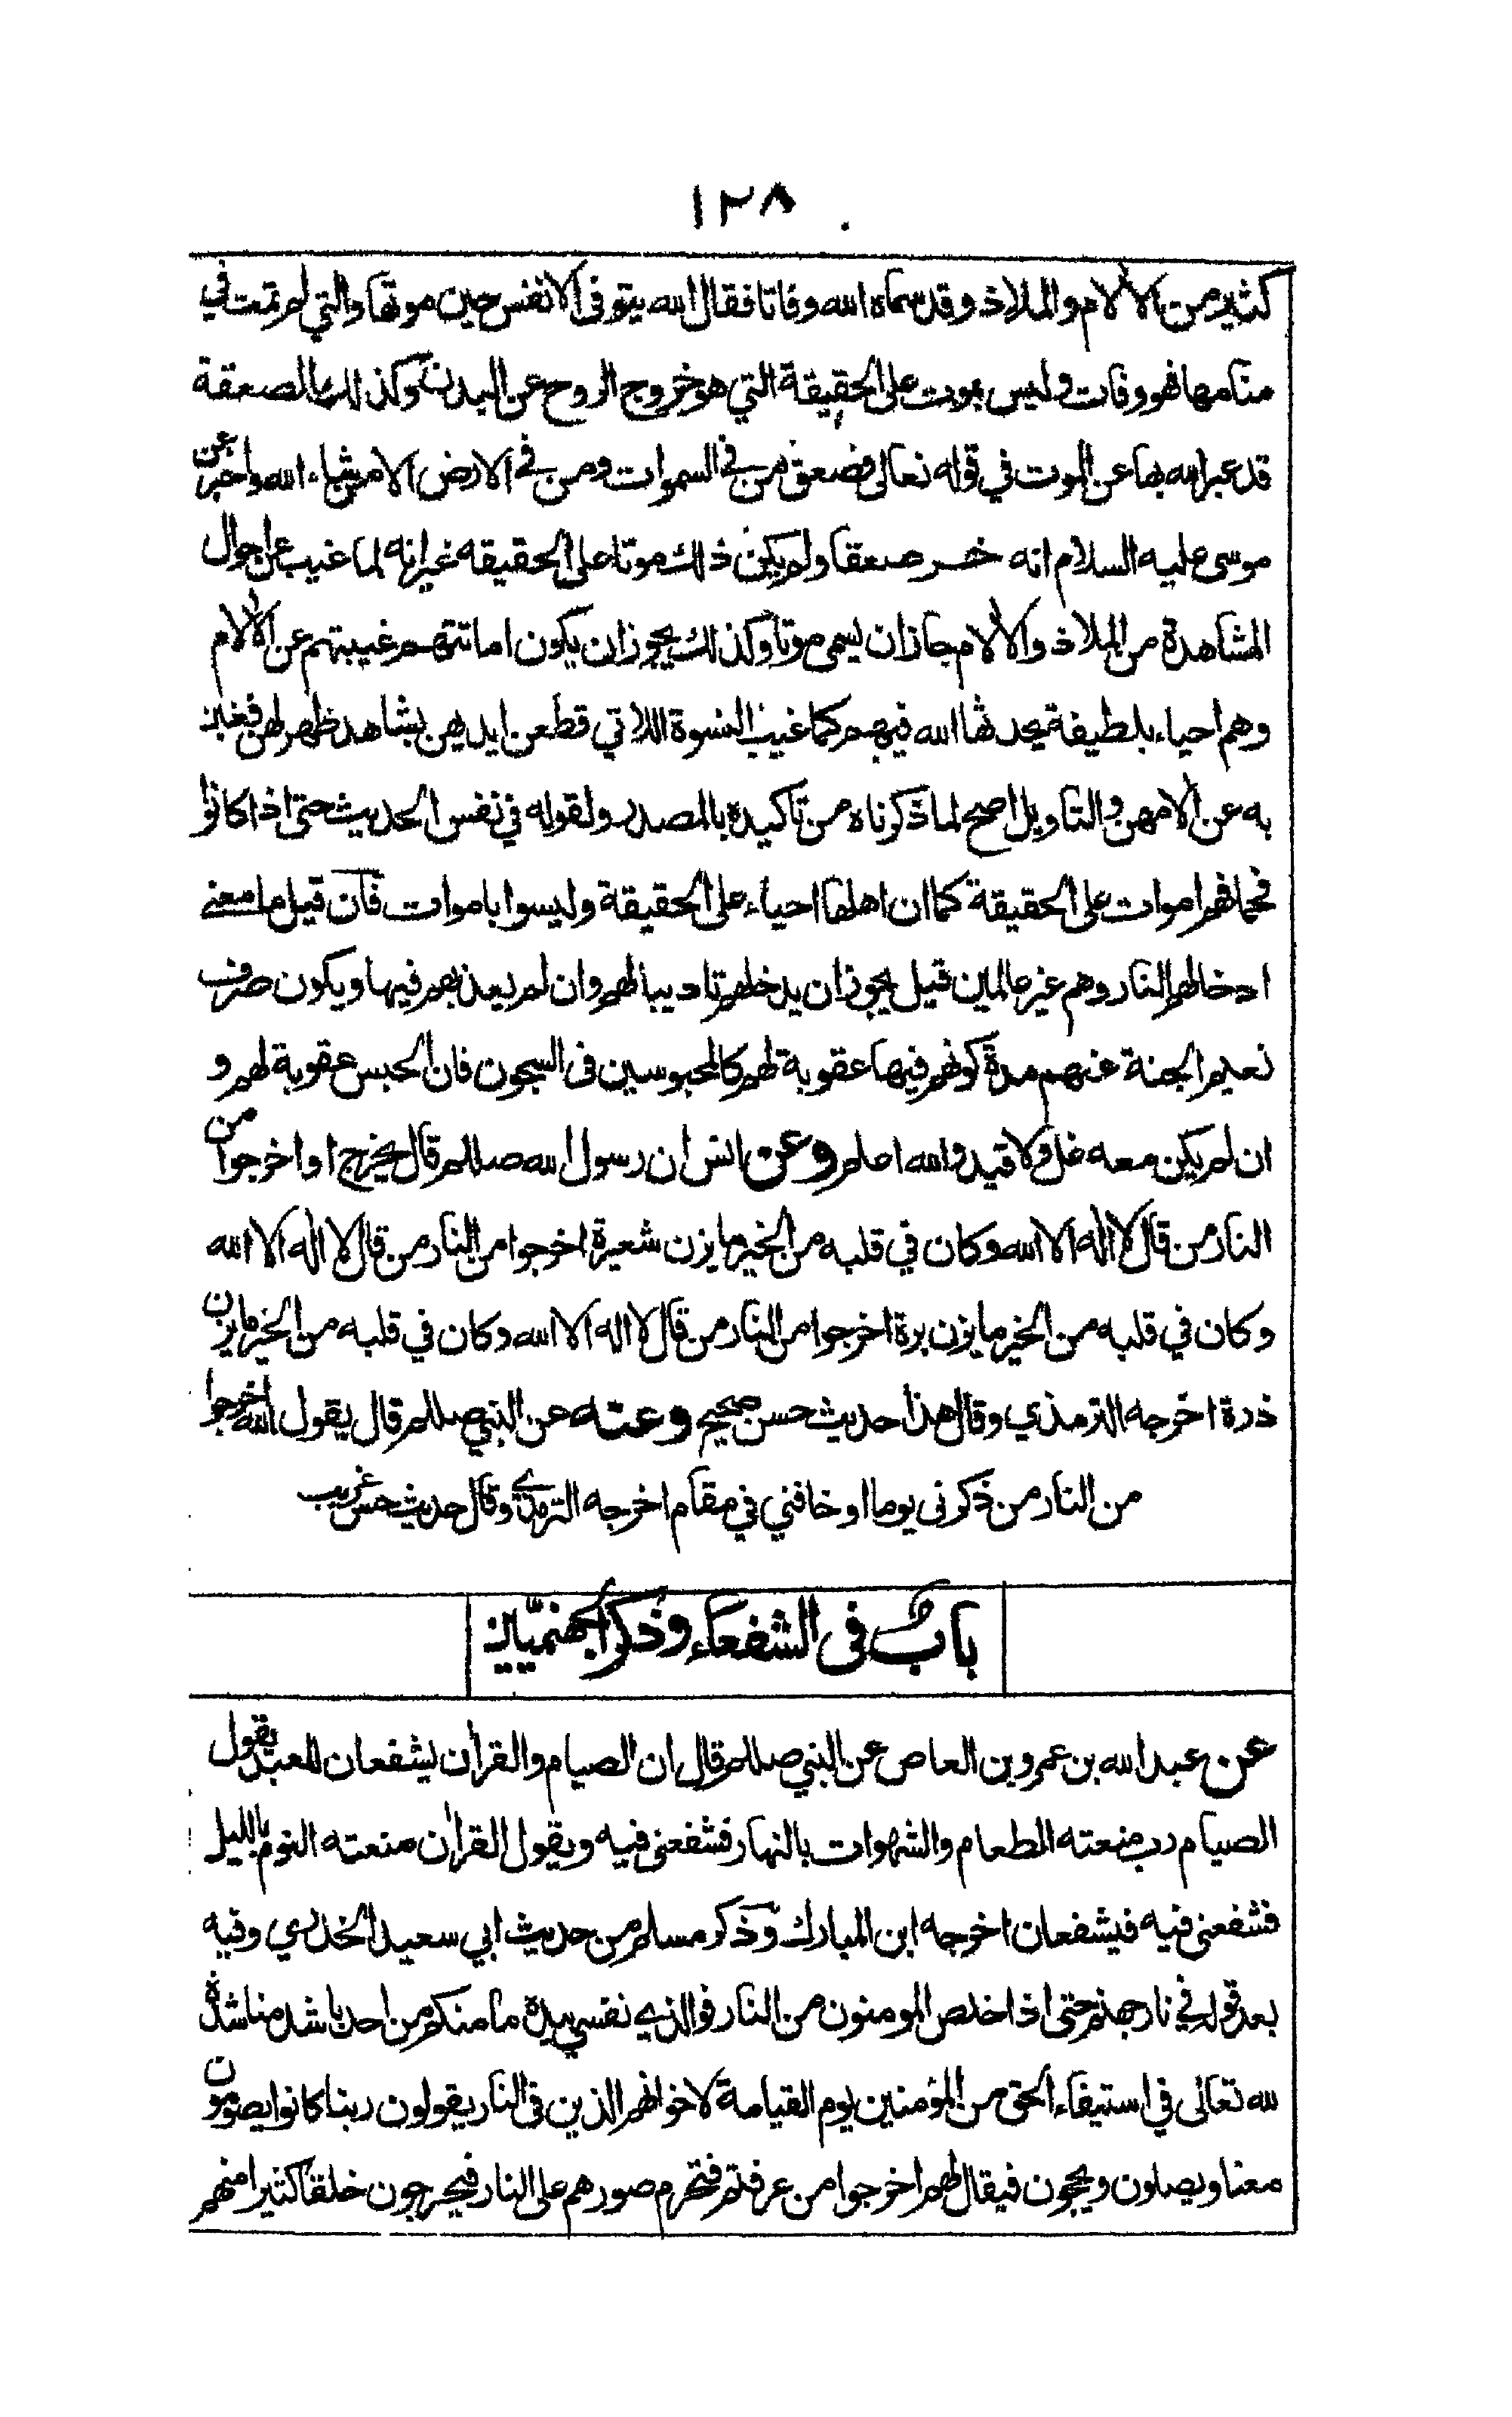 ١٢٨
كثير من الالام والملاذ وقد سماه الله وفاتا فقال الله يتوفى الانفس حين موتها والتي لم تمت في
منامها فهو وفات وليس بموت على الحقيقة التي هو خروج الروح عن البدن وكذلك بالصعقة
قد عبر الله بها عن الموت في قوله تعالى فصعق من في السموات ومن في الارض الا من شاء الله واخبر عن
موسى عليه السلام انه خر صعقا ولم يكن ذلك موتا على الحقيقه غير انه لما غيب عن احوال
المشاهدة من الملاذ والالام جاز ان يسمى موتا وكذلك يجوز ان يكون اماتتهم غيبتهم عن الالام
وهم احياء بلطيفة يحدثها الله فيهم كما غيب النسوة اللاتي قطعن ايديهن بشاهد ظهر لهن فغبن
به عن الامهن والتاويل اصح لما ذكرناه من تاكيده بالمصدر ولقوله في نفس الحديث حتى اذا كانوا
فحما فهم اموات على الحقيقة كما ان اهلها احياء على الحقيقة وليسوا باموات فان قيل ما معنى
ادخالهم النار وهم غير عالمين قيل يجوز ان يدخلهم تاديبا لهم وان لم يعذبهم فيها ويكون صرف
نعيم الجنة عنهم مدة كونهم فيها عقوبة لهم كالمحبوسين فى السجون فان الحبس عقوبة لهم و
ان لم يكن معه غل ولا قيد والله اعلم وعن انس ان رسول الله صللم قال يخرج او اخرجوا من
النار من قال لا اله الا الله وكان في قلبه من الخير ما يزن شعيرة اخرجوا من النار من قال لا اله الا الله
وكان في قلبه من الخير ما يزن برة اخرجوا من النار من قال لا اله الا الله وكان في قلبه من الخير ما يزن
ذرة اخرجه الترمذي وقال هذا حديث حسن صحيح وعنه عن النبي صللم قال يقول الله اخرجوا
من النار من ذكرنى يوما او خافني في مقام اخرجه الترمذي وقال حديث حسن غريب
باب فى الشفعاء وذكر الجهنميين
عن عبد الله بن عمرو بن العاص عن النبي صللم قال ان الصيام والقرأن يشفعان للعبد يقول
الصيام رب منعته الطعام والشهوات بالنهار فشفعنى فيه ويقول القرأن منعته النوم بالليل
فشفعنى فيه فيشفعان اخرجه ابن المبارك وذكر مسلم من حديث ابي سعيد الخدري وفيه
بعد قوله في نار جهنم حتى اذا خلص المومنون من النار فوالذي نفسي بيده ما منكم من احد باشد مناشدة
لله تعالى في استيفاء الحق من المؤمنين يوم القيامة لاخوانهم الذين فى النار يقولون ربنا كانوا يصومون
معنا ويصلون ويحجون فيقال لهم اخرجوا من عرفتم فتحرم صورهم على النار فيخرجون خلقا كثيرا منهم